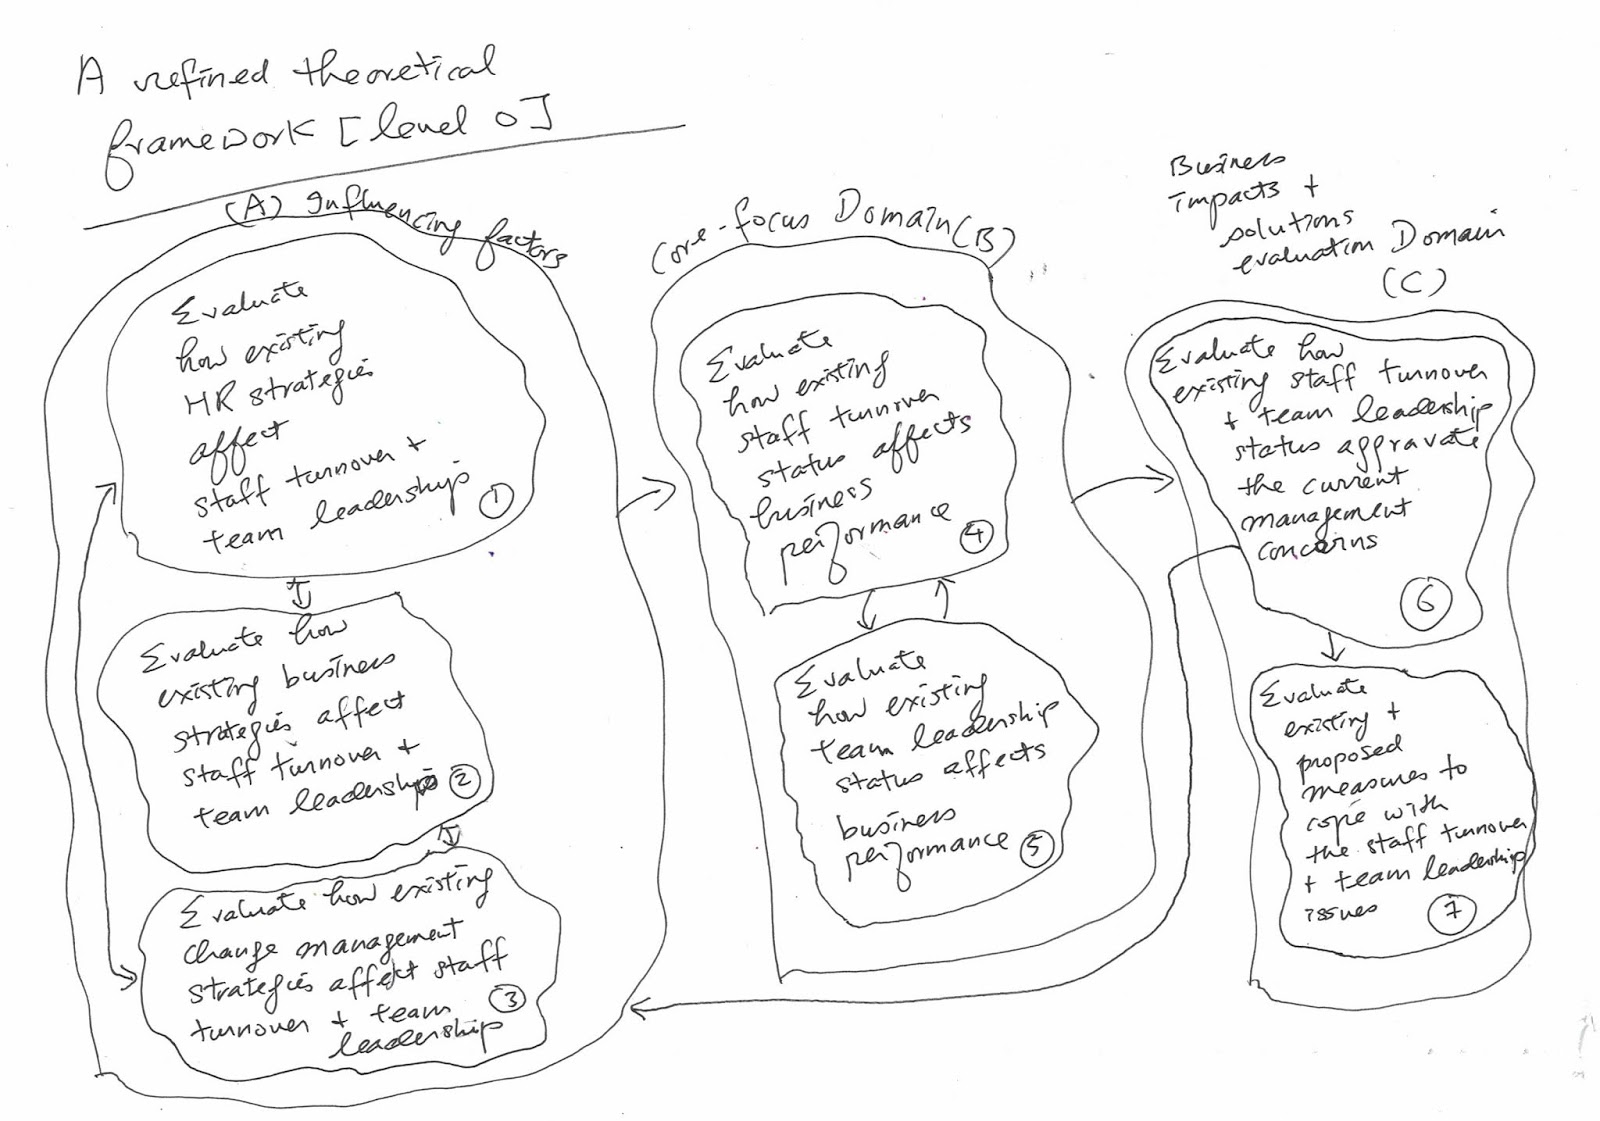 A refined theoretical
framework [level 0]
(A) Influencing factors
Evaluate
how existing
HR strategies
affect
staff turnover +
team leadership
1
Evaluate how
existing business
strategies affect
staff turnover +
team leadership
2
Evaluate how existing
change management
strategies affect staff
turnover + team
leadership
3
Core-focus Domain (B)
Evaluate
how existing
staff turnover
status affects
business
performance
4
Evaluate
how existing
team leadership
status affects
business
performance
5
Business
impacts +
solutions
evaluation Domain
(C)
Evaluate how
existing staff turnover
+ team leadership
status aggravate
the current
management
concerns
6
Evaluate
existing +
proposed
measures to
cope with
the staff turnover
+ team leadership
issues
7